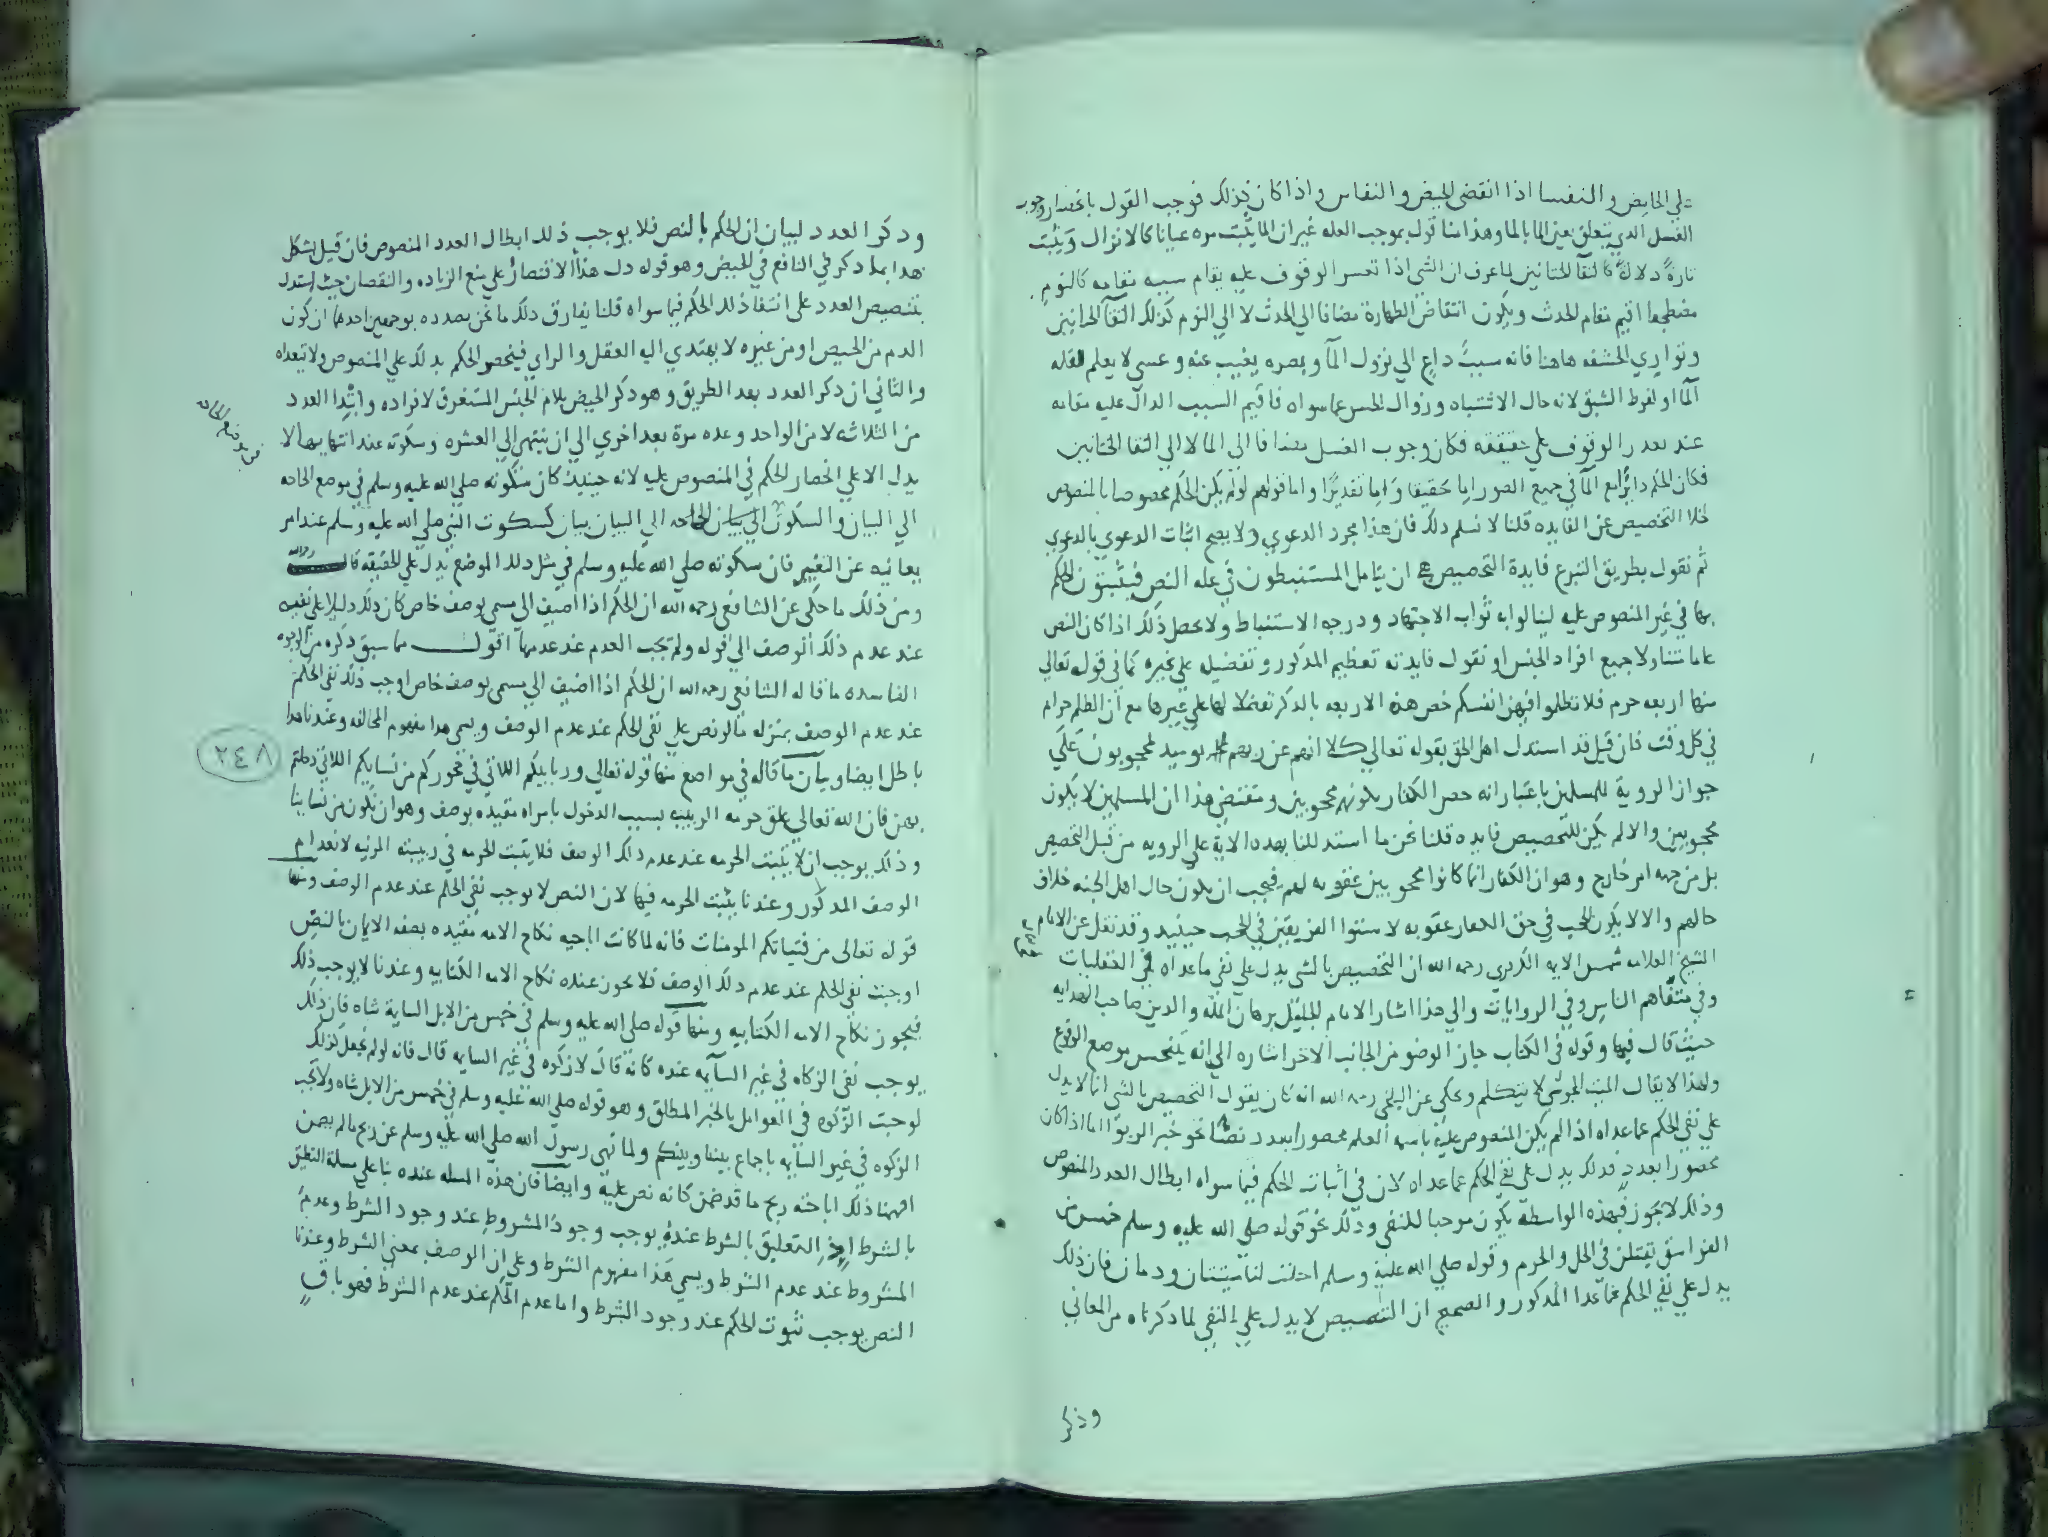 علي الحايض والنفسا اذا انقضي الحيض والنفاس واذا كان كذلك فوجب القول بانحصار وجوب
الغسل الذي يتعلق بعين الما بالما وهذا منا قول بموجب العله غير ان الما يثبت مره عيانا كالانزال ويثبت
تارةً دلالةً كالتقآ الختانين لما عرف ان الشي اذا تعسر الوقوف عليه يقام سببه مقامه كالنوم
مضطجعا اقيم مقام الحدث ويكون انتقاض الطهارة مضافا الي الحدث لا الي النوم كذلك التقآ الختانين
وتواري الحشفه هاهنا فانه سببٌ داعٍ الي نزول المآ وبصره يغيب عنه وعسي لا يعلم لقله
المآ او لفرط الشبق لانه حال الاشتباه وزوال الحس عما سواه فاقيم السبب الدال عليه مقامه
عند تعذر الوقوف علي حقيقته فكان وجوب الغسل مضافا الي الما لا الي التقا الختانين
فكان الحكم دايرًا مع المآ في جميع الصور اما حقيقا واما تقديرًا واما قولهم لو لم يكن الحكم مخصوصا بالمنصوص
لخلا التخصيص عن الفايده قلنا لا نسلم ذلك فان هذا مجرد الدعوي ولا يصح اثبات الدعوي بالدعوي
ثم نقول بطريق التبرع فايدة التخصيص هي ان يتامل المستنبطون في عله النص فيثبتون الحكم
بها في غير المنصوص عليه لينالوا به ثواب الاجتهاد ودرجه الاستنباط ولا يحصل ذلك اذا كان النص
عاما متناولا جميع افراد الجنس او نقول فايدته تعظيم المذكور وتفضيله علي غيره كما في قوله تعالي
منها اربعه حرم فلا تظلموا فيهن انفسكم خص هذه الاربعه بالذكر تفضيلا لها علي غيرها مع ان الظلم حرام
في كل وقت فان قيل قد استدل اهل الحق بقوله تعالي كلا انهم عن ربهم يوميذ لمحجوبون علي
جواز الروية للمسلمين باعتبار انه حصر الكفار بكونهم محجوبين ومقتضي هذا ان المسلمين لا يكون
محجوبين والا لم يكن للتخصيص فايده قلنا نحن ما استدللنا بهذه الاية علي الرويه من قبل التخصيص
بل من جهه امر خارج وهو ان الكفار انما كانوا محجوبين عقوبه لهم فيجب ان يكون حال اهل الجنه خلاف
حالهم والا لا يكون الحجب في حق الكفار عقوبه لاستوا الفريقين في الحجب حينيذ وقد نقل عن الامام
الشيخ العلامه شمس الايه الكردري رحمه الله ان التخصيص بالشي يدل علي نفي ما عداه في العقليات
وفي متفاهم الناس وفي الروايات والي هذا اشار الامام الجليل برهان المله والدين صاحب الهدايه
حيث قال فيها وقوله في الكتاب جاز الوضو من الجانب الاخر اشاره الي انه يتنجس موضع الوقوع
ولهذا لا يقال الميت المجوسي لا يتكلم وحكي عن البلخي رحمه الله انه كان يقول التخصيص بالشي انما لا يدل
علي نفي الحكم عما عداه اذا لم يكن المنصوص عليه باسم العلم محصورا بعدد نصًا نحو خبر الربوا اما اذا كان
محصورا بعدد فذلك يدل علي نفي الحكم عما عداه لان في اثبات الحكم فيما سواه ابطال العدد المنصوص
وذلك لا يجوز فبهذه الواسطة يكون موجبا للنفي وذلك نحو قوله صلي الله عليه وسلم خمس من
الفواسق يقتلن في الحل والحرم وقوله صلي الله عليه وسلم احلت لنا ميتتان ودمان فان ذلك
يدل علي نفي الحكم عما عدا المذكور والصحيح ان التنصيص لا يدل علي النفي لما ذكرناه من المعاني
وذكر
وذكر العدد لبيان ان الحكم بالنص فلا يوجب ذلك ابطال العدد المنصوص فان قيل يشكل
هذا بما ذكر في النافع في الحيض وهو قوله دل هذا الاقتصار علي منع الزياده والنقصان حيث استدل
بتنصيص العدد علي انتفا ذلك الحكم فيما سواه قلنا يفارق ذلك ما نحن بصدده بوجهين احدهما ان كون
الدم من الحيض او من غيره لا يهتدي اليه العقل والراي فينحصر الحكم بذلك علي المنصوص ولا يتعداه
والثاني ان ذكر العدد بعد الطريق وهو ذكر الحيض بلام الجنس المستغرق لافراده وابتدا العدد
من الثلاثه لا من الواحد وعده مرة بعد اخري الي ان ينتهي الي العشره وسكوته عند انتهايها لا
يدل الا علي انحصار الحكم في المنصوص عليه لانه حينيذ كان سكوته صلي الله عليه وسلم في موضع الحاجه
الي البيان والسكوت الي البيان بيان كسكوت النبي صلي الله عليه وسلم عند امر
يعاينه عن التغيير فان سكوته صلي الله عليه وسلم في مثل ذلك الموضع يدل علي الحقيقه قال رحمه الله
ومن ذلك ما حكي عن الشافعي رحمه الله ان الحكم اذا اضيف الي مسمي بوصف خاص كان ذلك دليلا علي نفيه
عند عدم ذلك الوصف الي قوله ولم يجب العدم عند عدمها اقول مما سبق ذكره من الوجوه
الفاسده ما قاله الشافعي رحمه الله ان الحكم اذا اضيف الي مسمي بوصف خاص اوجب ذلك نفي الحكم
عند عدم الوصف بمنزله ما لو نص علي نفي الحكم عند عدم الوصف ويسمي هذا مفهوم المخالفه وعندنا هذا
باطل ايضا وبيان ما قاله في مواضع منها قوله تعالي وربايبكم اللاتي في حجوركم من نسايكم اللاتي دخلتم
بهن فان الله تعالي علق حرمه الربيبه بسبب الدخول بامراه مقيده بوصف وهو ان يكون من نساينا
وذلك يوجب ان لا يثبت الحرمه عند عدم ذلك الوصف فلا يثبت الحرمه في ربيبته المزنيه لانعدام
الوصف المذكور وعندنا يثبت الحرمه فيها لان النص لا يوجب نفي الحكم عند عدم الوصف ومنها
قوله تعالي من فتياتكم المومنات فانه لما كانت اباحيه نكاح الامه مقيده بصفه الايمان بالنص
اوجبت نفي الحكم عند عدم ذلك الوصف فلا يجوز عنده نكاح الامه الكتابيه وعندنا لا يوجب ذلك
فيجوز نكاح الامه الكتابيه ومنها قوله صلي الله عليه وسلم في خمس من الابل السايمة شاه فان ذلك
يوجب نفي الزكاه في غير السآيمه عنده كانه قال لا زكوه في غير السايمه قال فانه لو لم نجعل كذلك
لوجبت الزكوه في العوامل بالخبر المطلق وهو قوله صلي الله عليه وسلم في خمس من الابل شاه ولا تجب
الزكوه في غير السآيمه باجماع بيننا وبينكم ولما نهي رسول الله صلي الله عليه وسلم عن ربح ما لم يضمن
افهمنا ذلك اباحته ربح ما قد ضمن كانه نص عليه وايضا فان هذه المسله عنده بنا علي مسلة التعليق
بالشرط اذ التعليق بالشرط عنده يوجب وجود المشروط عند وجود الشرط وعدم
المشروط عند عدم الشرط ويسمي هذا مفهوم الشرط وعلي ان الوصف بمعني الشرط وعندنا
النص يوجب ثبوت الحكم عند وجود الشرط واما عدم الحكم عند عدم الشرط فهو باقٍ
في موضع الحاجه
٢٤٨